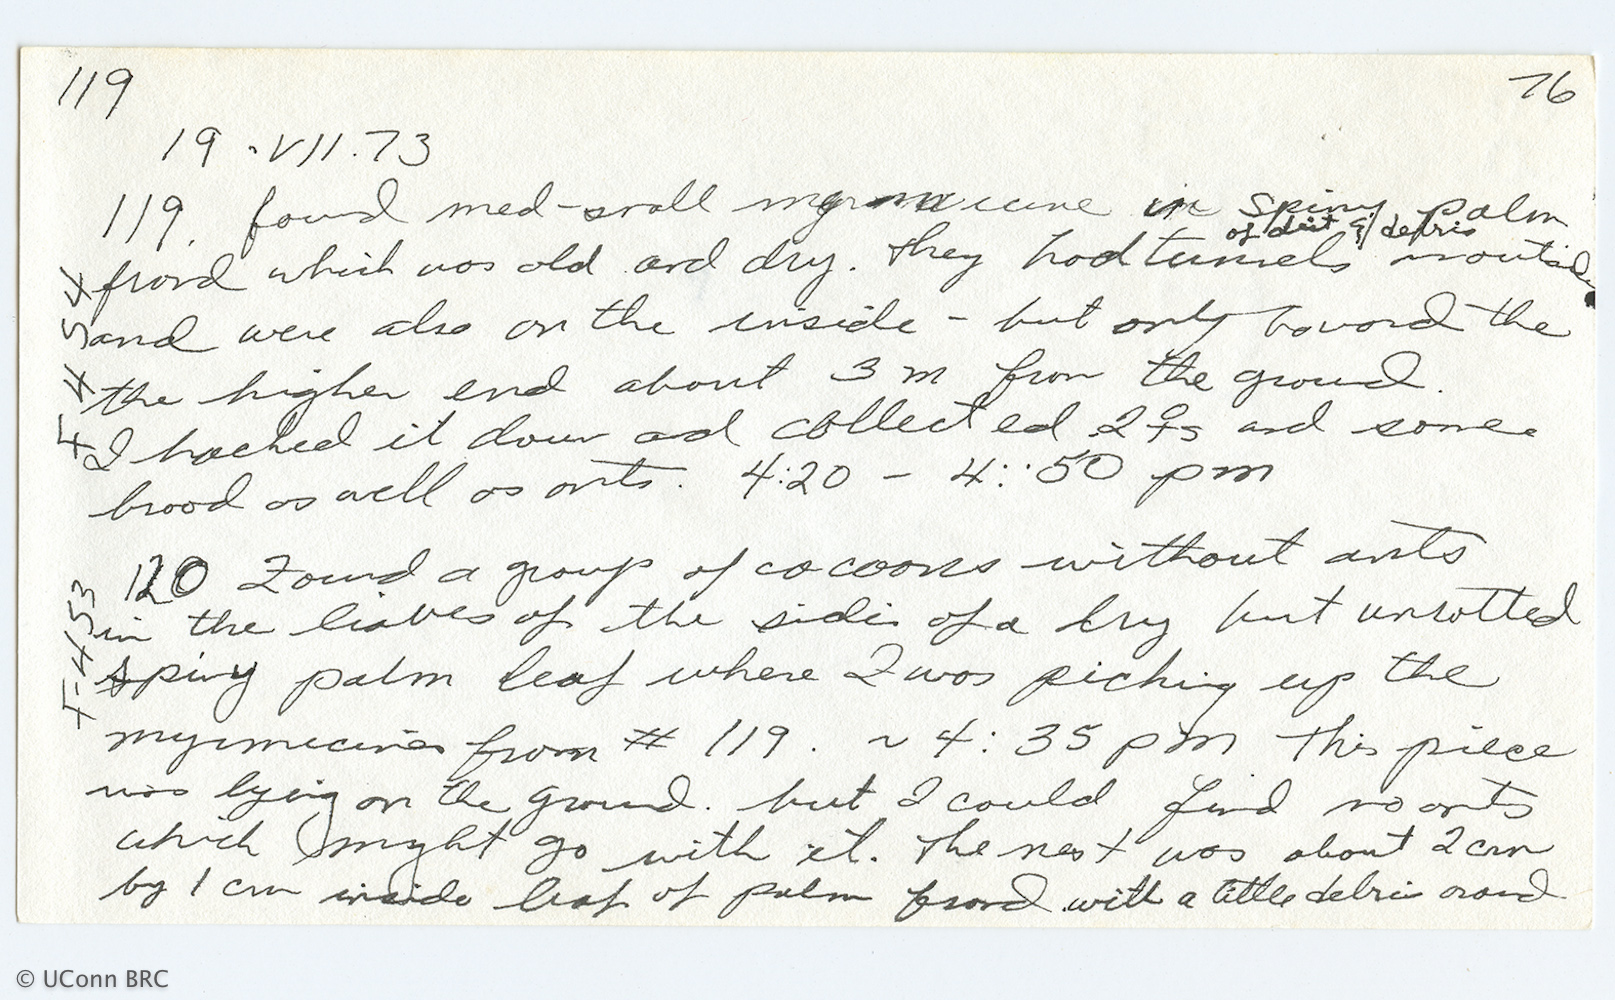 119 76
19.VII.73
119. found med-small myrmicine in spiny palm
of dirt & debris
frond which was old and dry. They had tunnels on outside
and were also on the inside - but only toward the
the higher end about 3 m from the ground.
I hacked it down and collected 2 ♀s and some
brood as well as ants. 4:20 - 4:50 pm
F 4454
120 Found a group of cocoons without ants
in the leaves of the side of a dry but unrotted
spiny palm leaf where I was picking up the
myrmicines from # 119. ~ 4:35 pm This piece
was lying on the ground. but I could find no ants
which might go with it. The nest was about 2 cm
by 1 cm inside leaf of palm frond with a little debris around
F-4453
© UConn BRC